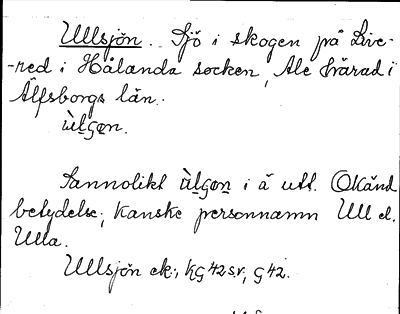 Ullsjön. Sjö i skogen på Live-
-red i Hålanda socken, Ale härad i
Älfsborgs län.
ùlʃọn.
Sannolikt ùlʃọn i ä utt. Okänd
betydelse; kanske personnamn Ull el.
Ulla.
Ullsjön ek., KG 42 s.v., G 42.